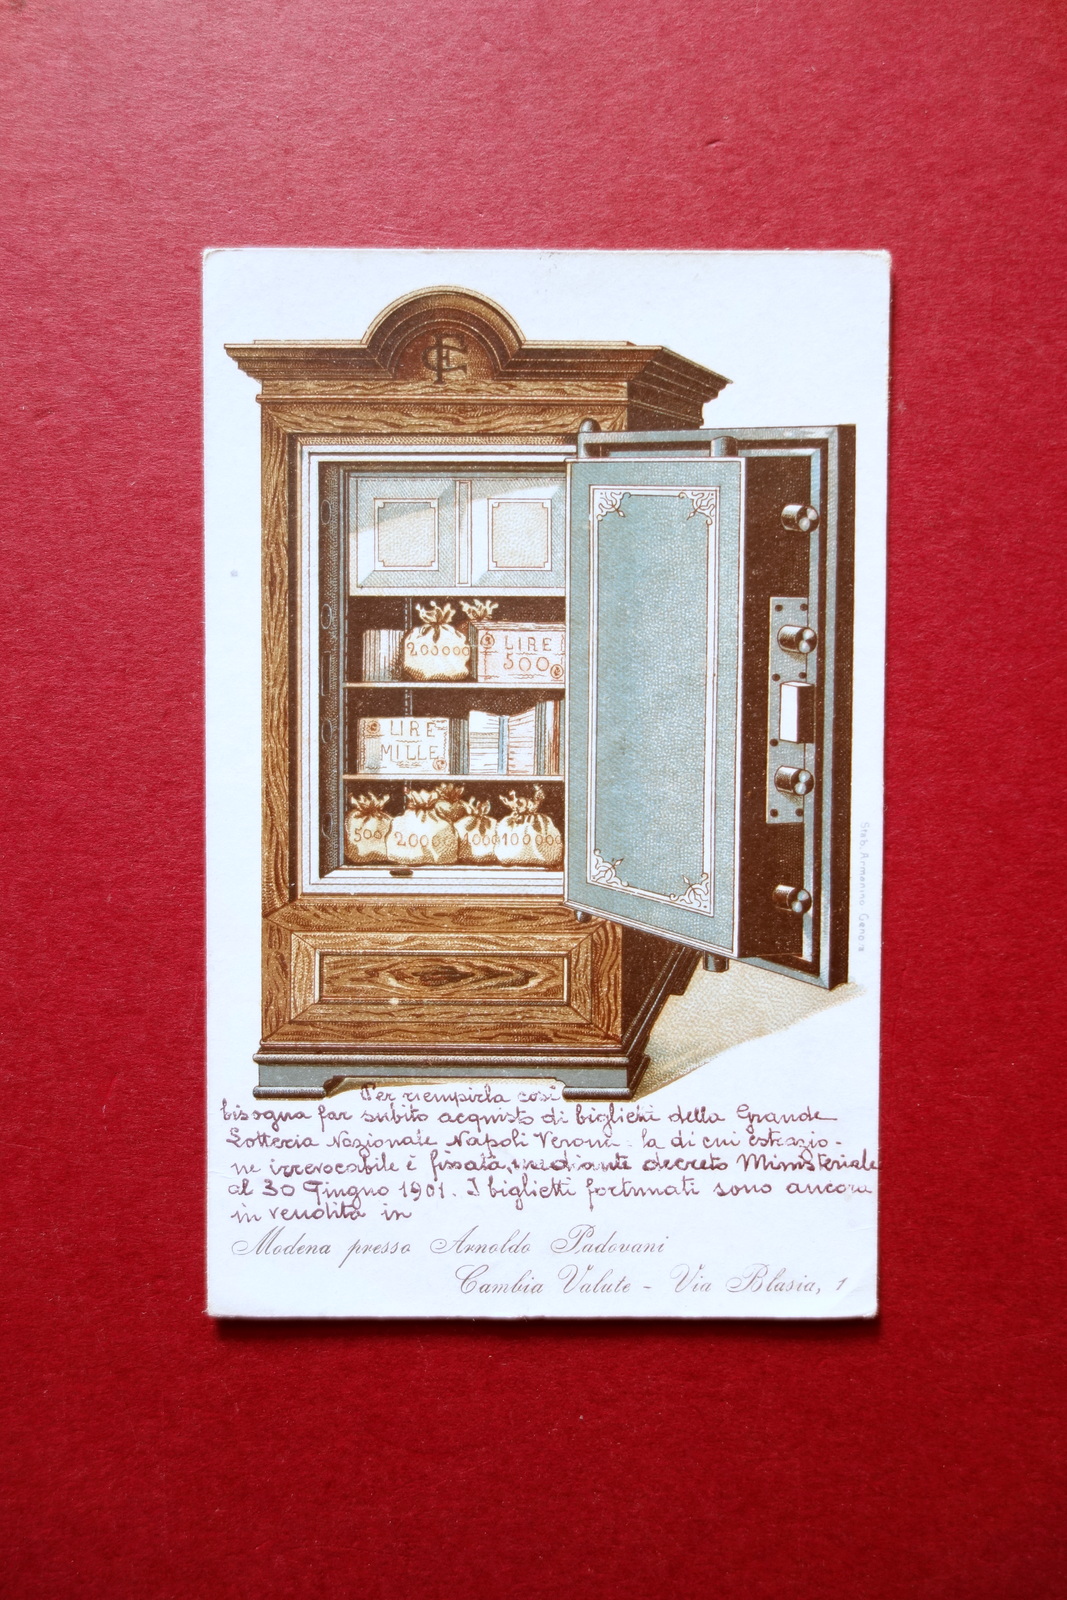 CF
200000
LIRE
500
LIRE
MILLE
500
2000
1000
100000
Stab. Armanino Genova
Per riempirla così
bisogna far subito acquisto di biglietti della Grande
Lotteria Nazionale Napoli Verona - la di cui estrazio-
ne irrevocabile è fissata, mediante decreto Ministeriale
al 30 Giugno 1901. I biglietti fortunati sono ancora
in vendita in
Modena presso Arnoldo Padovani
Cambia Valute - Via Blasia, 1